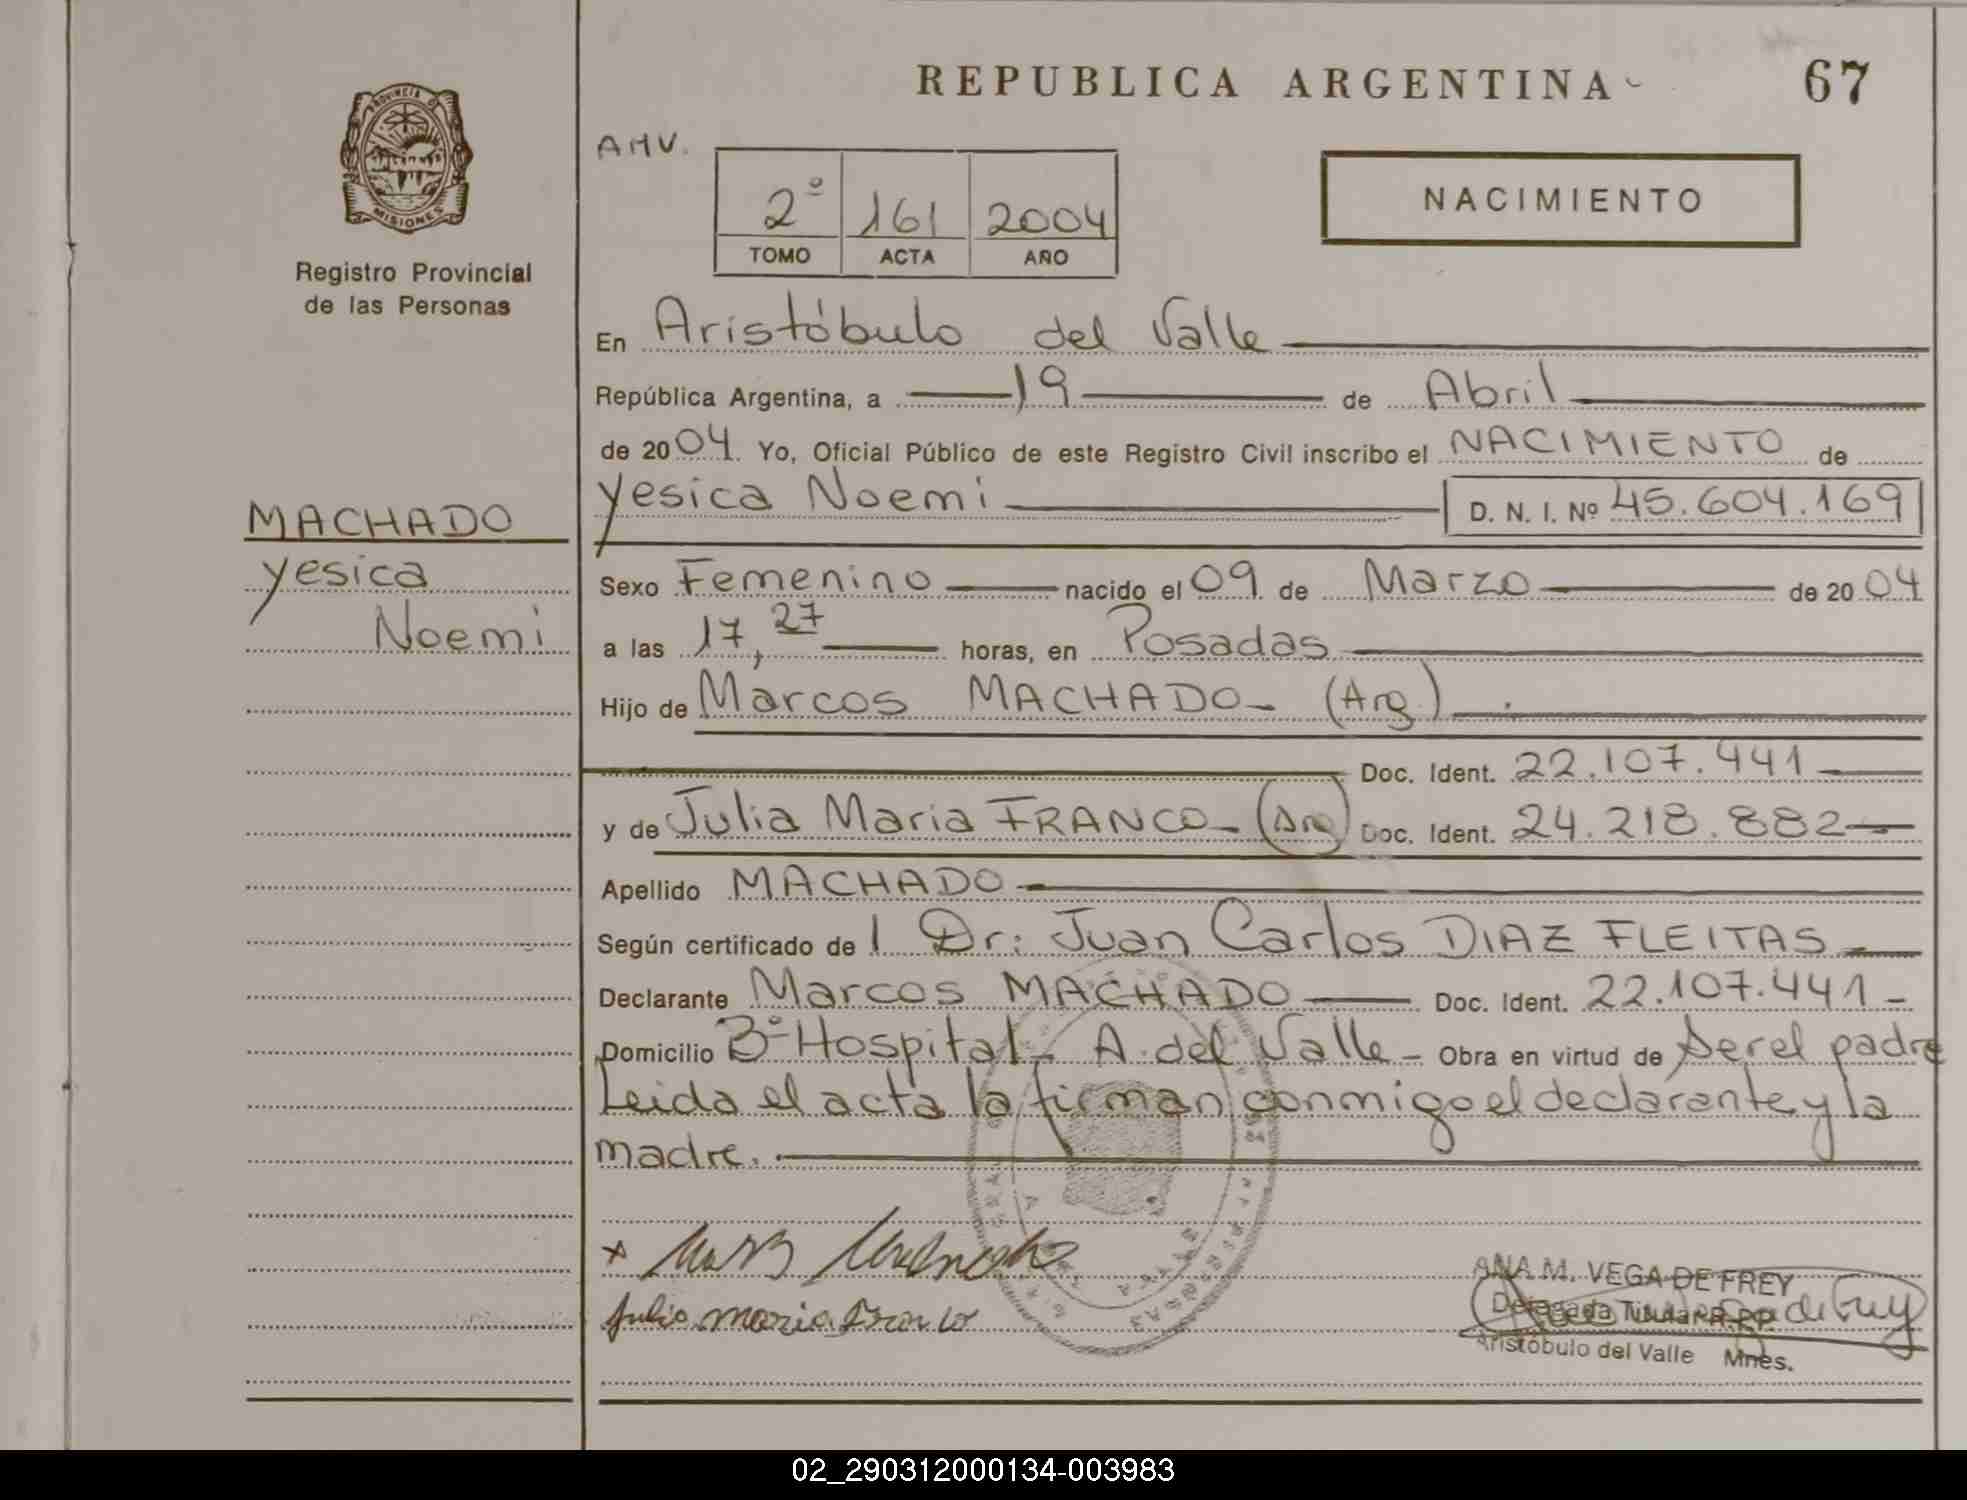 REPUBLICA ARGENTINA
67
PROVINCIA DE
MISIONES
Registro Provincial
de las Personas
AMV.
2º 161 2004
TOMO ACTA AÑO
NACIMIENTO
En Aristóbulo del Valle
República Argentina, a 19 de Abril
de 2004. Yo, Oficial Público de este Registro Civil inscribo el NACIMIENTO de
Yesica Noemi D. N. I. Nº 45.604.169
MACHADO
Yesica
Noemi
Sexo Femenino nacido el 09 de Marzo de 2004
a las 17,27 horas, en Posadas
Hijo de Marcos MACHADO- (Arg.)
Doc. Ident. 22.107.441
y de Julia Maria FRANCO- (Arg) Doc. Ident. 24.218.882
Apellido MACHADO
Según certificado de l Dr: Juan Carlos DIAZ FLEITAS
Declarante Marcos MACHADO Doc. Ident. 22.107.441-
Domicilio Bº Hospital- A. del Valle- Obra en virtud de Ser el padre
Leida el acta la firman conmigo el declarante y la
madre.
Julia maria Franco
ANA M. VEGA DE FREY
Delegada Titular R.P.P.
Aristóbulo del Valle Mnes.
02_290312000134-003983